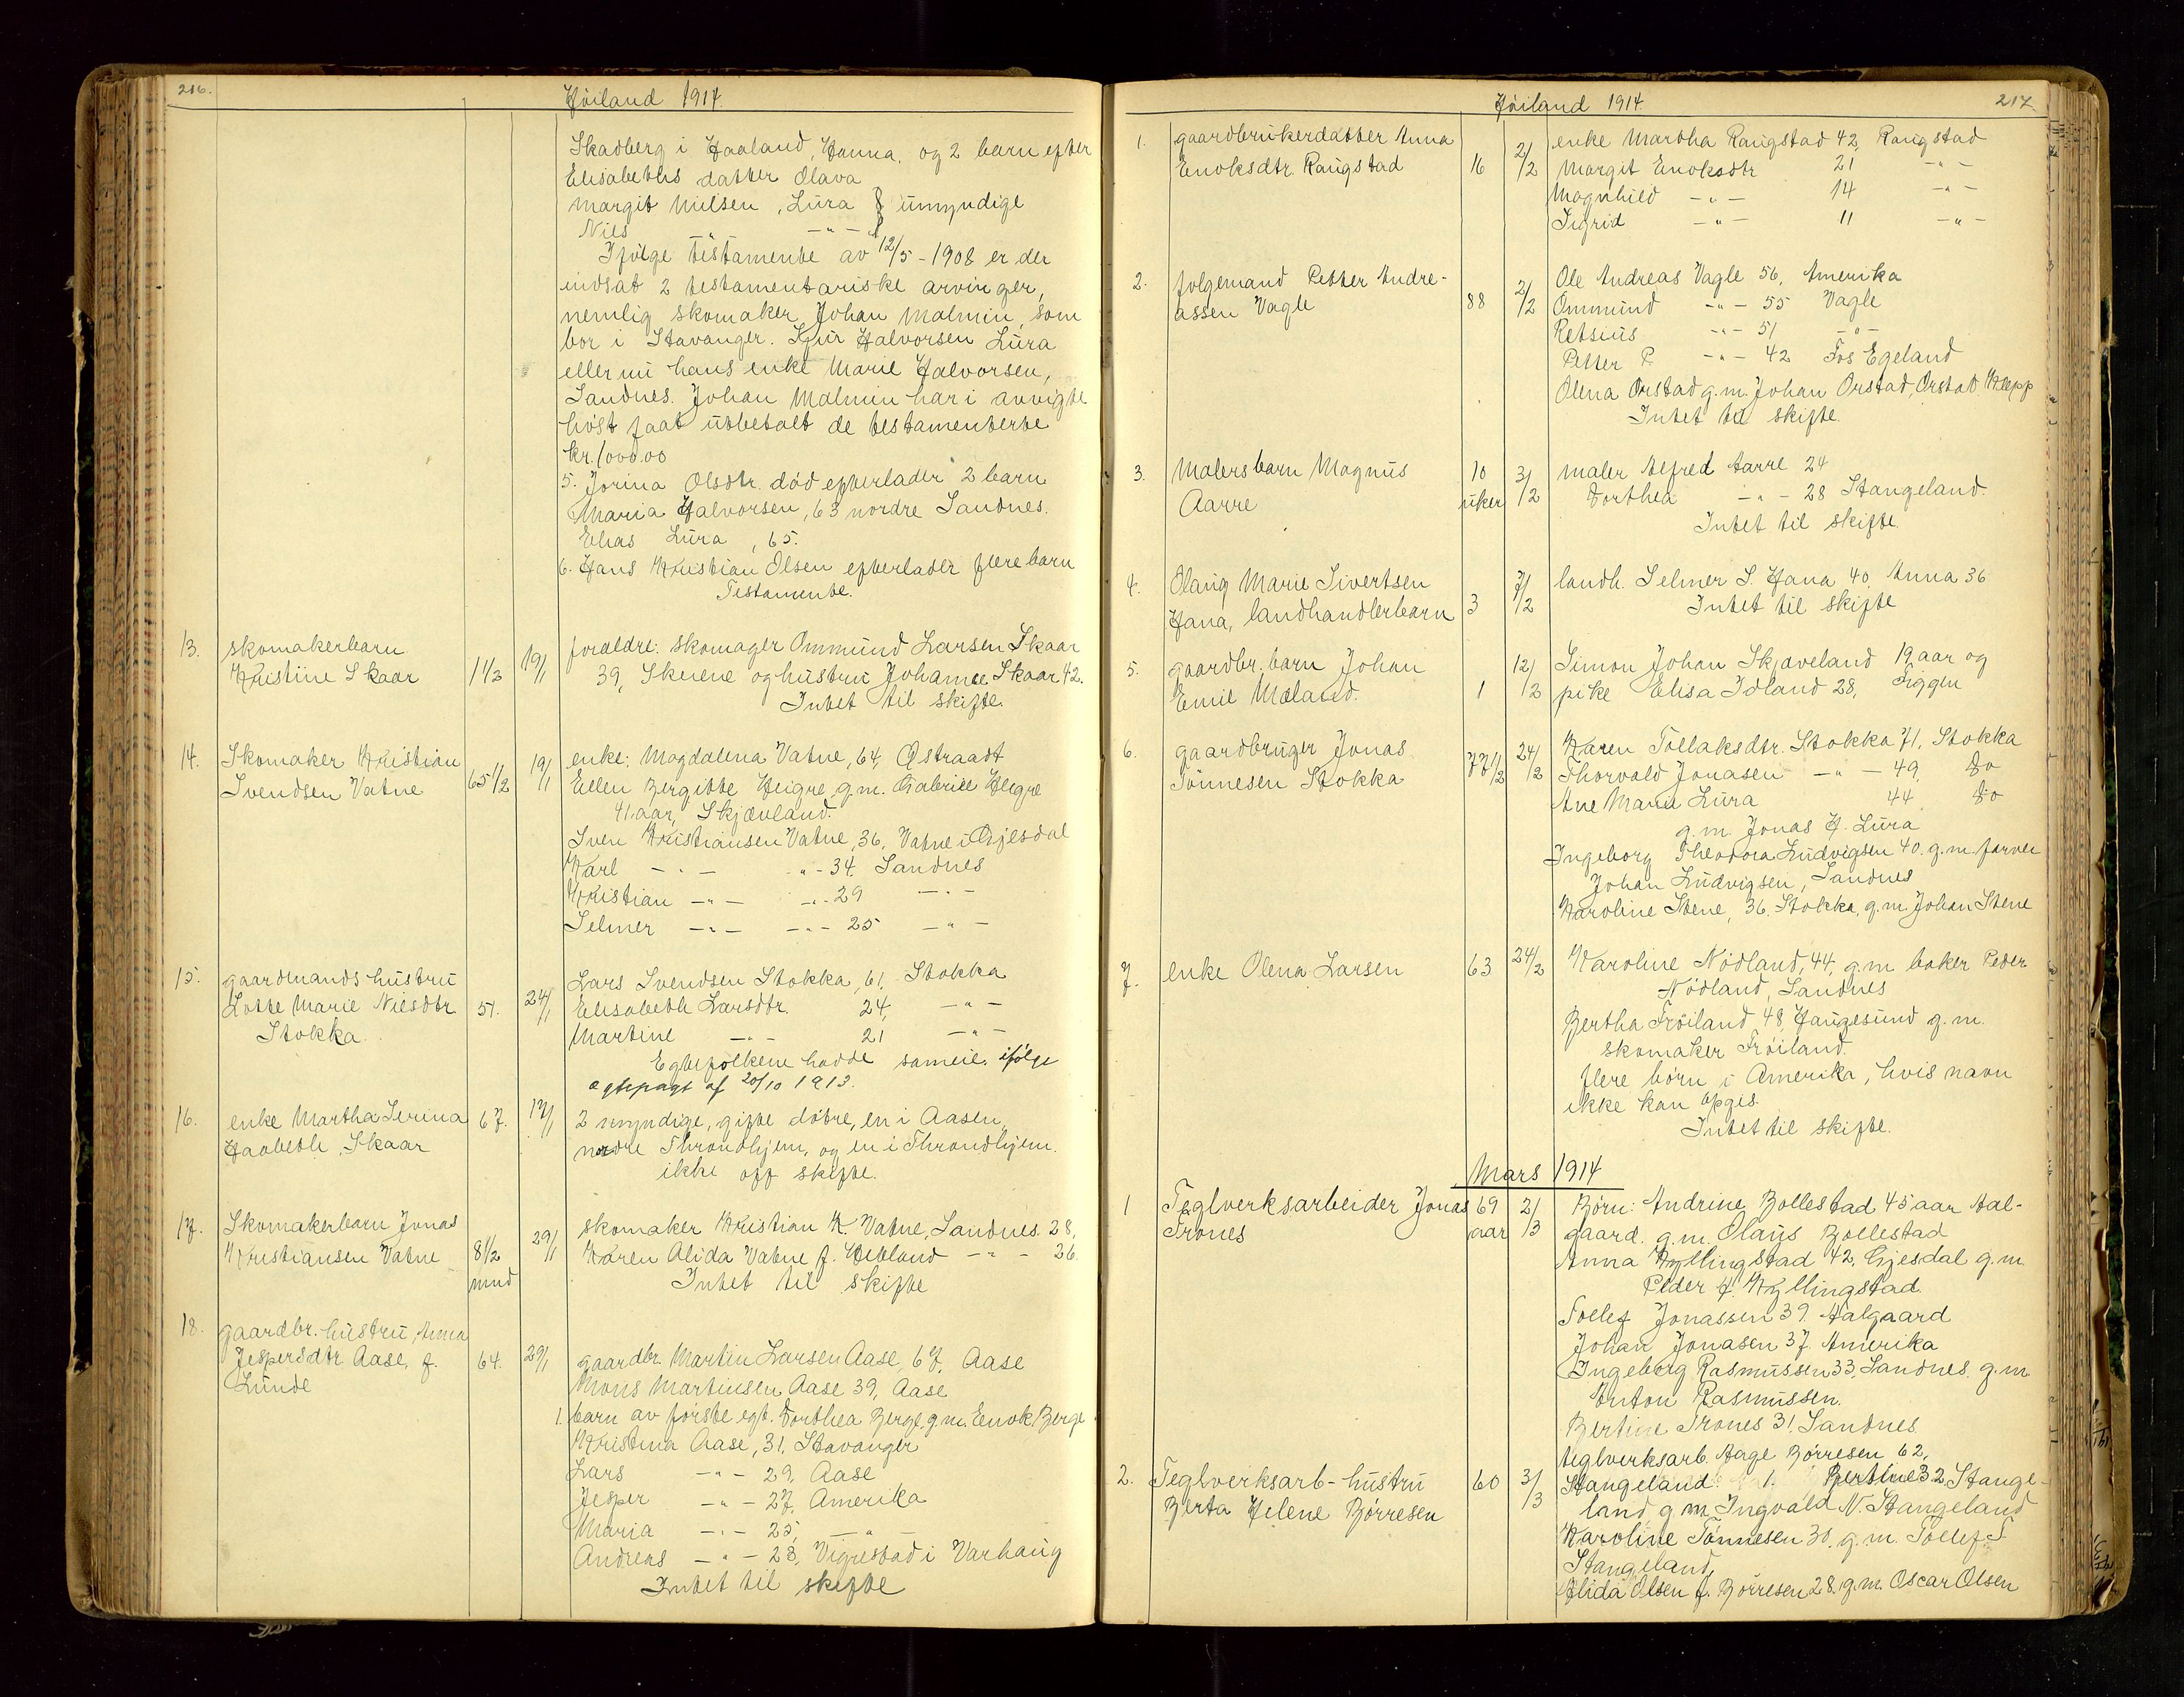 216.
Høiland 1914.
Skadberg i Haaland, Hanna, og 2 barn efter
Elisabeths datter Olava
Margit Nielsen, Lura } umyndige
Nils -"-
Ifølge testamente av 12/5 - 1908 er der
indsat 2 testamentariske arvinger,
nemlig skomaker Johan Malmin, som
bor i Stavanger. Sjur Halvorsen Lura
eller nu hans enke Marie Halvorsen,
Sandnes. Johan Malmin har i avvigte
høst faat utbetalt de testamenterte
kr. 1000.00
5. Jorina Olsdtr. død efterlader 2 barn
Maria Halvorsen, 63 nordre Sandnes.
Elias Lura, 65.
6. Hans Kristian Olsen efterlader flere barn
Testamente.
13. skomakerbarn
Kristine Skaar 1 1/2 19/1
foreldre: skomager Ommund Larsen Skaar
39, Skeiene og hustru Johanne Skaar 42.
Intet til skifte.
14. Skomaker Kristian
Svendsen Vatne 65 1/2 19/1
enke: Magdalena Vatne, 64, Østraadt
Ellen Bergitte Heigre, g.m. Gabriel Heigre
41 aar, Skjævland.
Sven Kristiansen Vatne, 36, Vatne i Gjesdal
Karl -"- -"- 34 Sandnes
Kristian -"- -"- 29 -"-
Selmer -"- -"- 25 -"-
15. gaardmands hustru
Lotte Marie Nilsdtr. 51. 24/1
Stokka.
Lars Svendsen Stokka, 61, Stokka
Elisabeth Larsdtr. 24, -"-
Martine -"- 21 -"-
Egtefolkene hadde sameie. ifølge
egtepagt af 20/10 1913.
16. enke Martha Serina 67. 17/1
Haabeth, Skaar
2 myndige, gifte døtre, en i Aasen,
nordre Throndhjem, og en i Throndhjem.
ikke off skifte.
17. Skomakerbarn Jonas
Kristiansen Vatne 8 1/2 29/1
mnd
skomaker Kristian K. Vatne, Sandnes. 28,
Karen Alida Vatne f. Hetland -"- 26.
Intet til skifte
18. gaardbr. hustru, Anna
Jespersdtr. Aase, f. 64. 29/1
Lunde
gaardbr. Martin Larsen Aase, 67, Aase
Mons Martinsen Aase 39, Aase
1. barn av første egt. Dorthea Berge, g.m. Enok Berge.
Kristina Aase, 31, Stavanger
Lars -"- 29, Aase
Jesper -"- 27, Amerika
Maria -"- 25, -"-
Andreas -"- 23, Vigrestad i Varhaug
Intet til skifte
Høiland 1914.
217.
1. gaardbrukerdatter Anna
Enoksdtr. Raugstad 16 2/2
enke Martha Raugstad 42, Raugstad
Margit Enoksdtr 21 -"-
Magnhild -"- 14 -"-
Sigrid -"- 11 -"-
2. følgemand Petter Andre-
assen Vagle 88 2/2
Ole Andreas Vagle 56, Amerika
Ommund -"- 55 Vagle
Retsius -"- 51 -"-
Petter P. -"- 42 Fos Egeland
Olena Orstad g.m. Johan Orstad, Orstad Klepp
Intet til skifte.
3. Malersbarn Magnus 10 3/2
Aarre uker
maler Alfred Aarre 24
Dorthea -"- 28 Stangeland.
Intet til skifte.
4. Olaug Marie Sivertsen
Hana, landhandlerbarn 3 7/2
landh. Selmer S. Hana 40, Anna 36
Intet til skifte
5. gaardbr. barn Johan
Emil Mæland. 1 12/2
Simon Johan Skjæveland 19 aar og
pike Elisa Idland 28, Figgen
6. gaardbruger Jonas
Tønnesen Stokka 77 1/2 24/2
Karen Tollaksdtr. Stokka 71, Stokka
Thorvald Jonasen -"- 49, do
Ane Maria Lura 44 do
g.m. Jonas H. Lura
Ingeborg Theodora Ludvigsen 40. g.m. farver
Johan Ludvigsen, Sandnes
Karoline Stene, 36. Stokka, g.m. Johan Stene
7. enke Olena Larsen 63 24/2
Karoline Nödland, 44, g.m. baker Peder
Nödland, Sandnes
Bertha Frøiland 48, Haugesund g.m.
skomaker Frøiland.
flere børn i Amerika, hvis navn
ikke kan opgis.
Intet til skifte.
Mars 1914
1 Teglverksarbeider Jonas 69 2/3
Trones aar
Børn: Andrine Bollestad 45 aar Aal-
gaard. g.m. Olaus Bollestad
Anna Kyllingstad 42, Gjesdal g.m.
Peder J. Kyllingstad.
Tollef Jonassen 39. Aalgaard
Johan Jonasen 37. Amerika
Ingeborg Rasmussen 33, Sandnes. g.m.
Anton Rasmussen.
Bertine Trones 31, Sandnes.
2. Teglverksarb-hustru 60 3/3
Berta Helene Børresen
teglverksarb. Aage Børresen 62,
Stangeland. 1. Bertine 32 Stange-
land g.m. Ingvald N. Stangeland
Karoline Tönnesen 30. g.m. Tollef T.
Stangeland,
Alida Olsen f. Børresen 28. g.m. Oscar Olsen